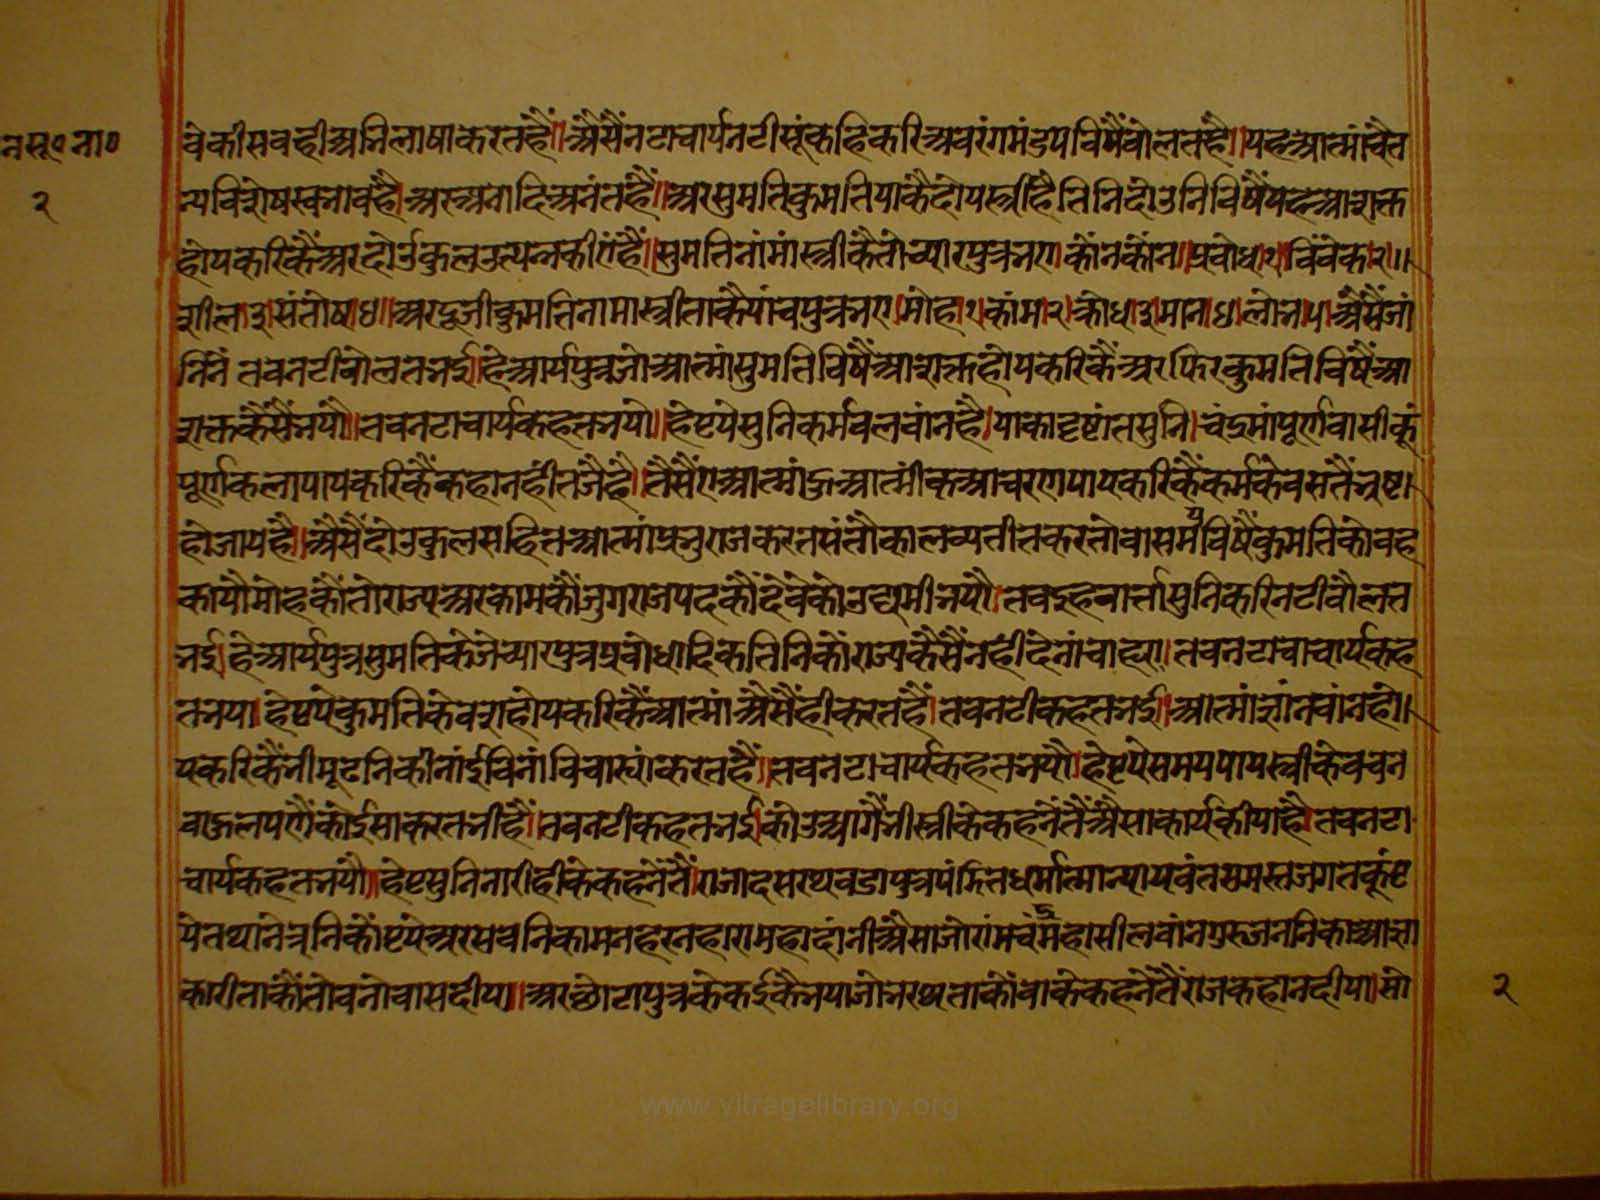 नसू०ना०
२
वेकीसवहीअभिलाषाकरतहैं॥अैसैंनटाचार्यनटीसूंकहिकरिअवरंगमंडपविषैंवोलतहै॥यहआत्मांचैत
न्यविशेषस्वभावहै।अरअनादिअनंतहैं॥अरसुमतिकुमतियाकैदोयस्त्रीहैतिनिदोउनिविषैंयहआशक्त
होयकरिकैंअरदोउंकुलउत्पन्नकीएंहैं॥सुमतिनांमांस्त्रीकैतोच्यारपुत्रभए।कोंनकोंन।प्रवोध।१।विवेक।२॥
शील।३।संतोष।४॥अरदूजीकुमतिनामास्त्रीताकैपांचपुत्रभए।मोह।१।कांम।२।क्रोध।३।मान।४।लोभ।५।अैसैंजां
निनं तवनटीवोलतभई।हेआर्यपुत्रजोआत्मांसुमतिविषैंआशक्तहोयकरिकैंअरफिरकुमतिविषैंआ
शक्तकैसैंभयौ॥तवनटाचार्यकहतभयो॥हेप्रियेसुनिकर्मवलवांनहै।याकादृष्टांतसुनि।चंद्रमांपूर्णवासीकूं
पूर्णकलापायकरिकैंकहानहींतजैहै।तैसैंएआत्मांजुआत्मींकआचरणपायकरिकैंकर्मकेवसतैंभृष्ट।
होजायहै।अैसैंदोउकुलसहितआत्मांप्रभुराजकरतसंतौकालव्यतीतकरतोवासमयविषैंकुमतिकोवह
कायौमोहकौंतोराज्यअरकामकौंजुगराजपदकौंदेवेकोउद्यमीभयौ।तवइहवार्त्तासुनिकरिनटीवौलत
भई।हेआर्यपुत्रसुमतिकेजेच्यारपुत्रप्रवोधादिकतिनिकोंराज्यकैसैंनहींदेनांचाह्या।तवनटाचाचार्यकह
तभया।हेप्रियेकुमतिकेवशहोयकरिकैंआत्मांअैसैंहीकरतहैं।तवनटीकहतभई।आत्मांज्ञांनवांनहो।
यकरिकैंभीमूढनिकीनांईविनांविचास्यांकरतहैं॥तवनटाचार्यकहतभयौ।हेप्रियेसमयपायस्त्रीकेवचन
वाजुलपणैंकोईसाकरतभीहैं।तवनटीकहतभई।कोउआगैंभीस्त्रीकेकहनेंतैंअैसाकार्यकीयाहै।तवनटा
चार्यकहतभयौ॥हेप्रेसुनिनारीहीकेकहनेंतैं।राजादसरथवडापुत्रपंडितधर्मात्मान्यायवंतसमस्तजगतकूंप्रि
येतथानेत्रनिकोंप्रियेअरसवनिकामनहरनहारामहादांनीअैसाजोरांमचंद्रमहासीलवांनगुरुजननिकाआज्ञा
कारीताकोंतोवनोवासदीया॥अरछोटापुत्रकेकईकैभयाजोभरथताकोंवाकेकहनेंतैंराजकहानदीया।सो
२
www.vitragelibrary.org